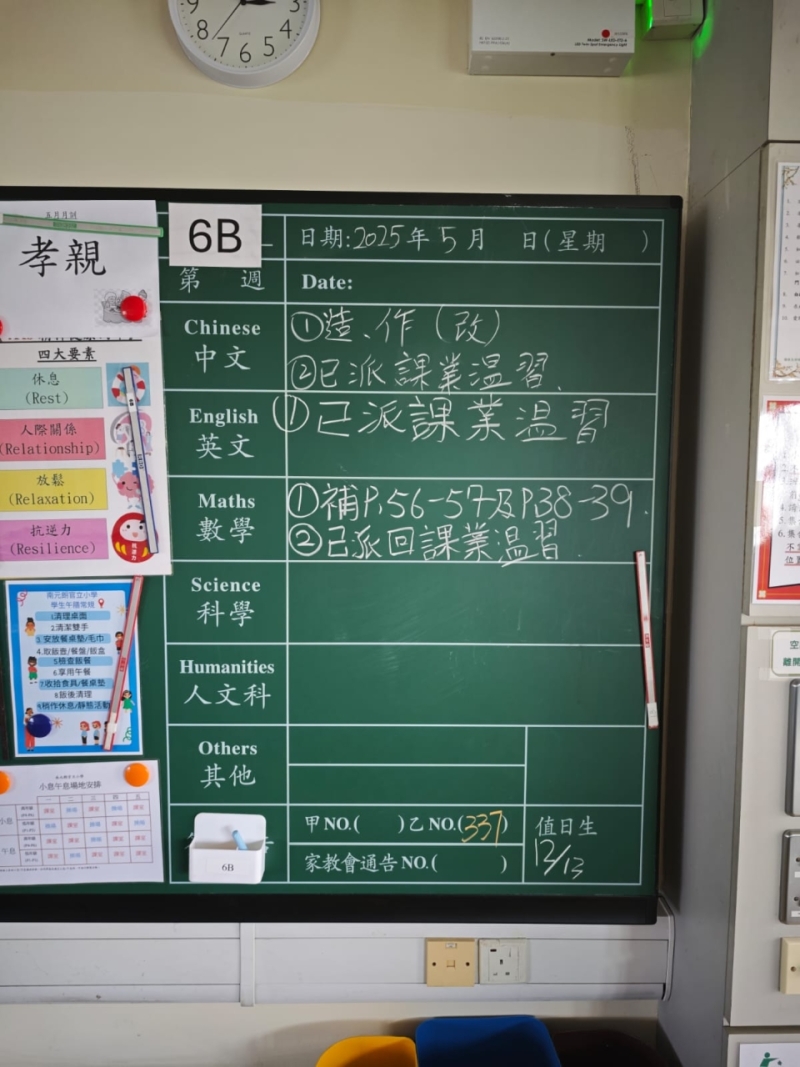 9
3
8
4
7
6
5
QUARTZ
五月月訓
孝親
四大要素
休息
(Rest)
人際關係
(Relationship)
放鬆
(Relaxation)
抗逆力
(Resilience)
南元朗官立小學
學生午膳常規
1清理桌面
2清潔雙手
3.安放餐桌墊/毛巾
4.取飯壺/餐盤/飯盒
5檢查飯餐
6.享用午餐
7收拾食具/餐桌墊
8飯後清理
9稍作休息/靜態活動
小息午息場地安排
一 二 三 四 五
小息
午息
6B
日期:2025年5月 日(星期 )
第 週
Date:
Chinese
中文
①造、作(改)
②已派課業溫習.
English
英文
①已派課業溫習
Maths
數學
①補P.56-57及P.38-39.
②已派回課業溫習.
Science
科學
Humanities
人文科
Others
其他
甲NO.( )乙NO.(337)
家教會通告NO.( )
值日生
12/13
6B